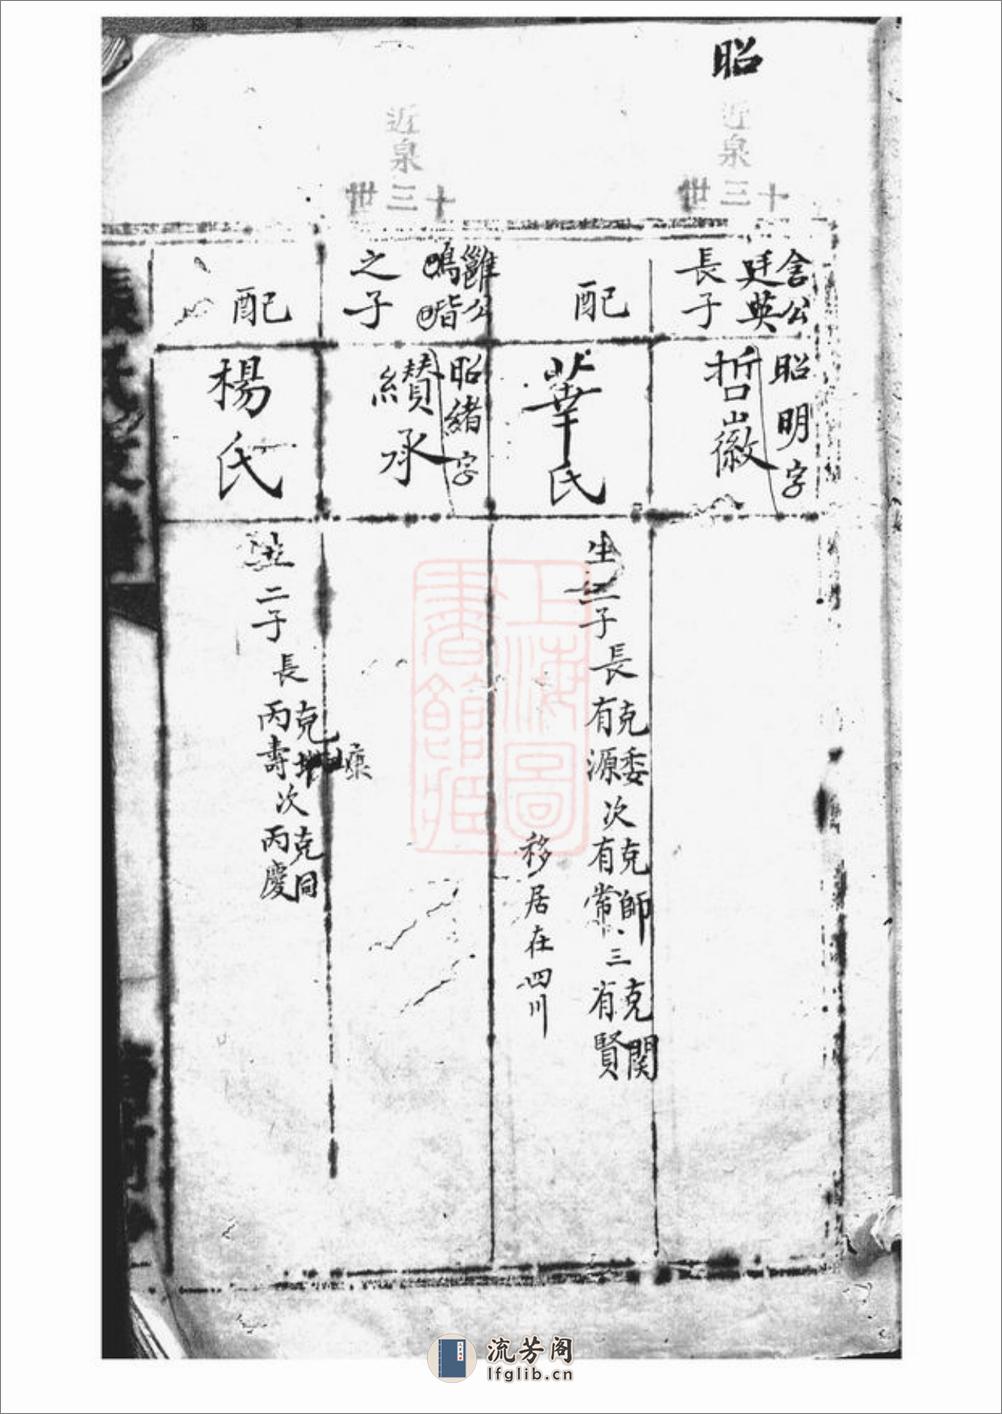 昭
近泉
十三世
含公
廷英
長子
昭明字
哲徽
配
華氏
生三子長
克委
有源
次
克師
有常
三
克関
有賢
移居在四川
近泉
十三世
雝公
鳴皆
之子
昭緒字
纘承
配
楊氏
生二子
長
克
康
丙壽
次
克同
丙慶
上海圖書館藏
流芳阁
lfglib.cn